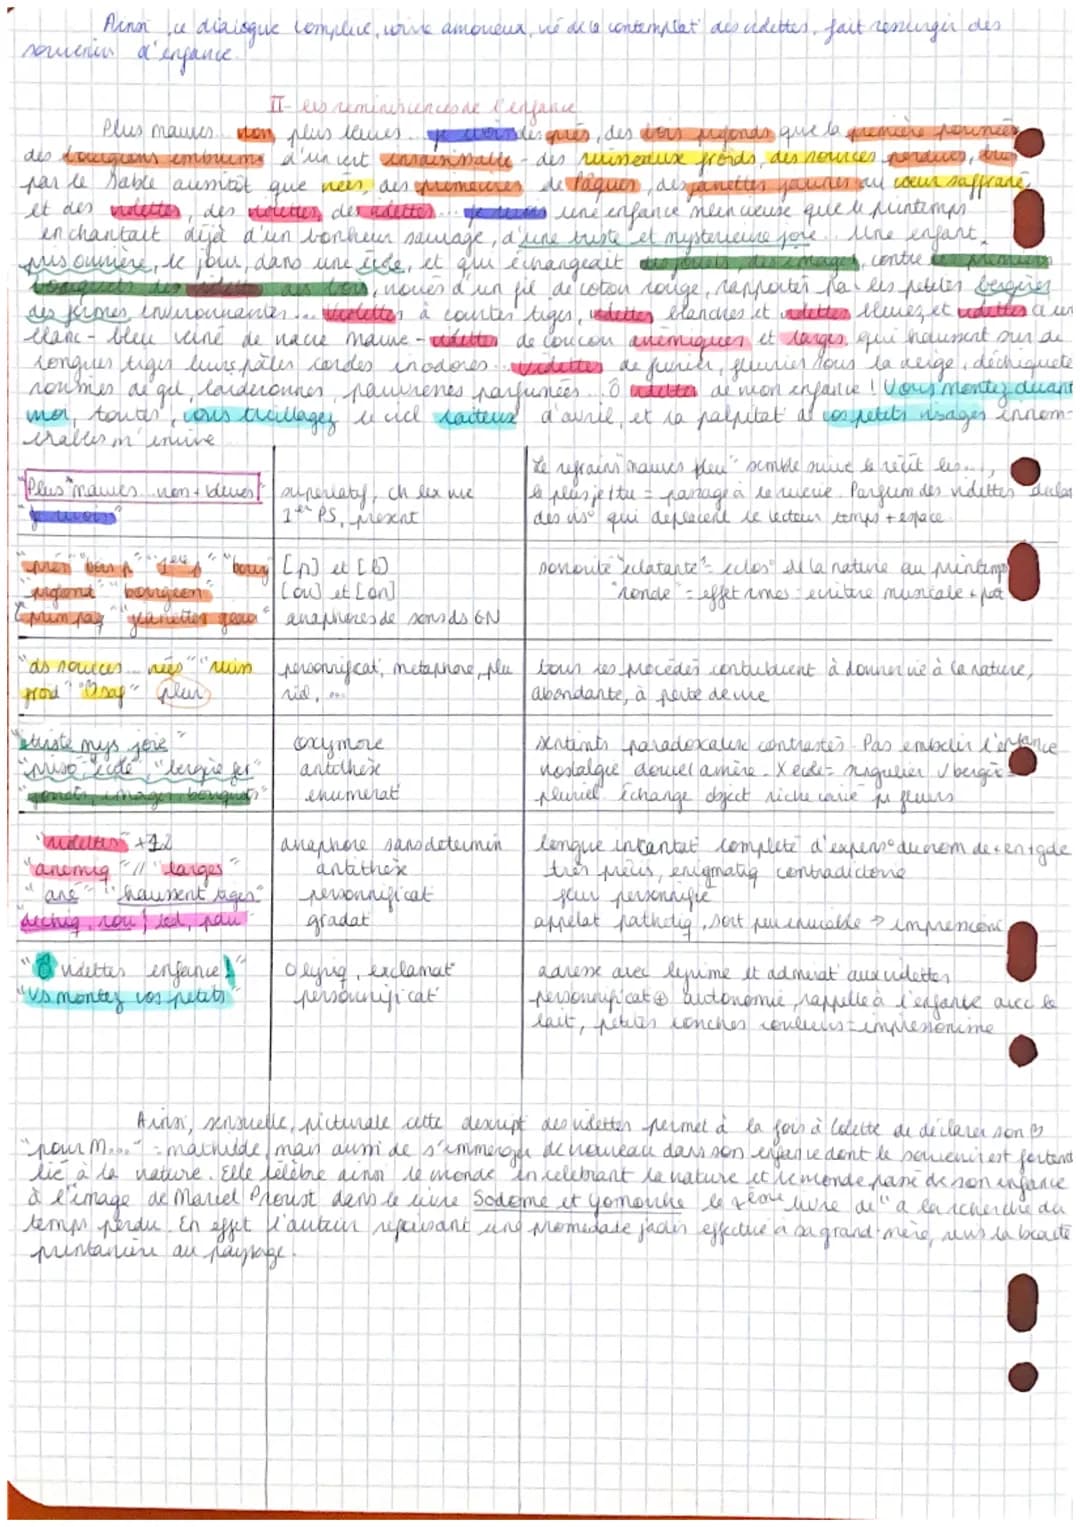 Ainsi, ce dialogue complice, voire amoureux, né de la contemplat° des violettes, fait ressurgir des
souvenirs d'enfance.
II- les réminiscences de l'enfance
Plus mauves... non, plus bleues... je vois des prés, des bois profonds que la première poussée
des bourgeons embrume d'un vert insaisissable - des ruisseaux froids, des sources perdues, bues
par le sable aussitôt que nées, des primevères de Pâques, des janettes jaunes au coeur safrané,
et des violettes, des violettes, des violettes... je revois une enfance silencieuse que le printemps
enchantait déjà d'un bonheur sauvage, d'une triste et mystérieuse joie... Une enfant,
prisonnière, le jour, dans une école, et qui échangeait des jouets, des images, contre les premiers
bouquets des violettes des bois, noués d'un fil de coton rouge, rapportés par les petites bergères
des fermes environnantes... violettes à courtes tiges, violettes blanches et violettes bleues, et violettes d'un
blanc-bleu veiné de nacre mauve - violettes de coucou anémiques et larges, qui haussent sur de
longues tiges leurs pâles corolles inodores... Violettes de février, fleuries sous la neige, déchiquetées
roussies de gel, laideronnes, pauvresses parfumées... Ô violettes de mon enfance ! Vous montez devant
moi, toutes, vous treillagez le ciel laiteux d'avril, et la palpitat° de vos petits visages innom-
brables m'enivre
"Plus mauves... non + bleues" superlatif, ch lex vue Le refrain "mauves bleu" semble suivre le récit les...,
"je vois" 1ère PS, présent le plus je/tu = partage à la rêverie. Parfum des violettes
des vis° qui déplacent le lecteur temps + espace
"prés" "bois p" "1ère p" "bourg" [p] et [b] sonorité "éclatante" = éclos° de la nature au printemps
"profond" "bourgeon" [ou] et [on] "ronde" = effet rimes = écriture musicale + pot
"prim paq" "janettes jaun" anaphores de sons ds GN
"ds sources... nées" "ruiss personnificat°, métaphore, plu tous les procédés contribuent à donner vie à la nature,
froid" "saf" plur riel, ... abondante, à perte de vue
"triste mys joie" oxymore sentimts paradoxaux contrastés. Pas embellir l'enfance
"priso école", "bergère fer" antithèse nostalgie douce/amère. X école = singulier V bergère =
"jouets, images bouquets" énumérat° pluriel échange object riche varié pr fleurs
"violettes" +12 anaphore sans détermin longue incantat° complété d'expans° du nom de + en + gde
"anémiq" // "larges" antithèse très précis, énigmatiq contradictoire
"haussent tiges" personnificat° fleur personnifié
"déchiq, rou, led, pau" gradat° appellat° pathétiq, sont peu enviable → impression
"Ô violettes enfance !" O lyriq, exclamat° adresse avec lyrisme et admirat° aux violettes
"Vs montez vos petits" personnificat° personnificat° ⊕ autonomie, rappelle à l'enfance avec le
lait, petites touches couleurs = impressionisme
Ainsi, sensuelle, picturale cette descript° des violettes permet à la fois à Colette de déclarer son ♡
"pour M..." = mathilde, mais aussi de s'immerger de nouveau dans son enfance dont le souvenir est fortemt
lié à la nature. Elle célèbre ainsi le monde en célébrant la nature et le monde passé de son enfance
à l'image de Marcel Proust dans le livre Sodome et Gomorrhe le 4ème livre de "à la recherche du
temps perdu. En effet l'auteur repensant une promenade jadis effectué à sa grand-mère, revis la beauté
printanière du paysage.